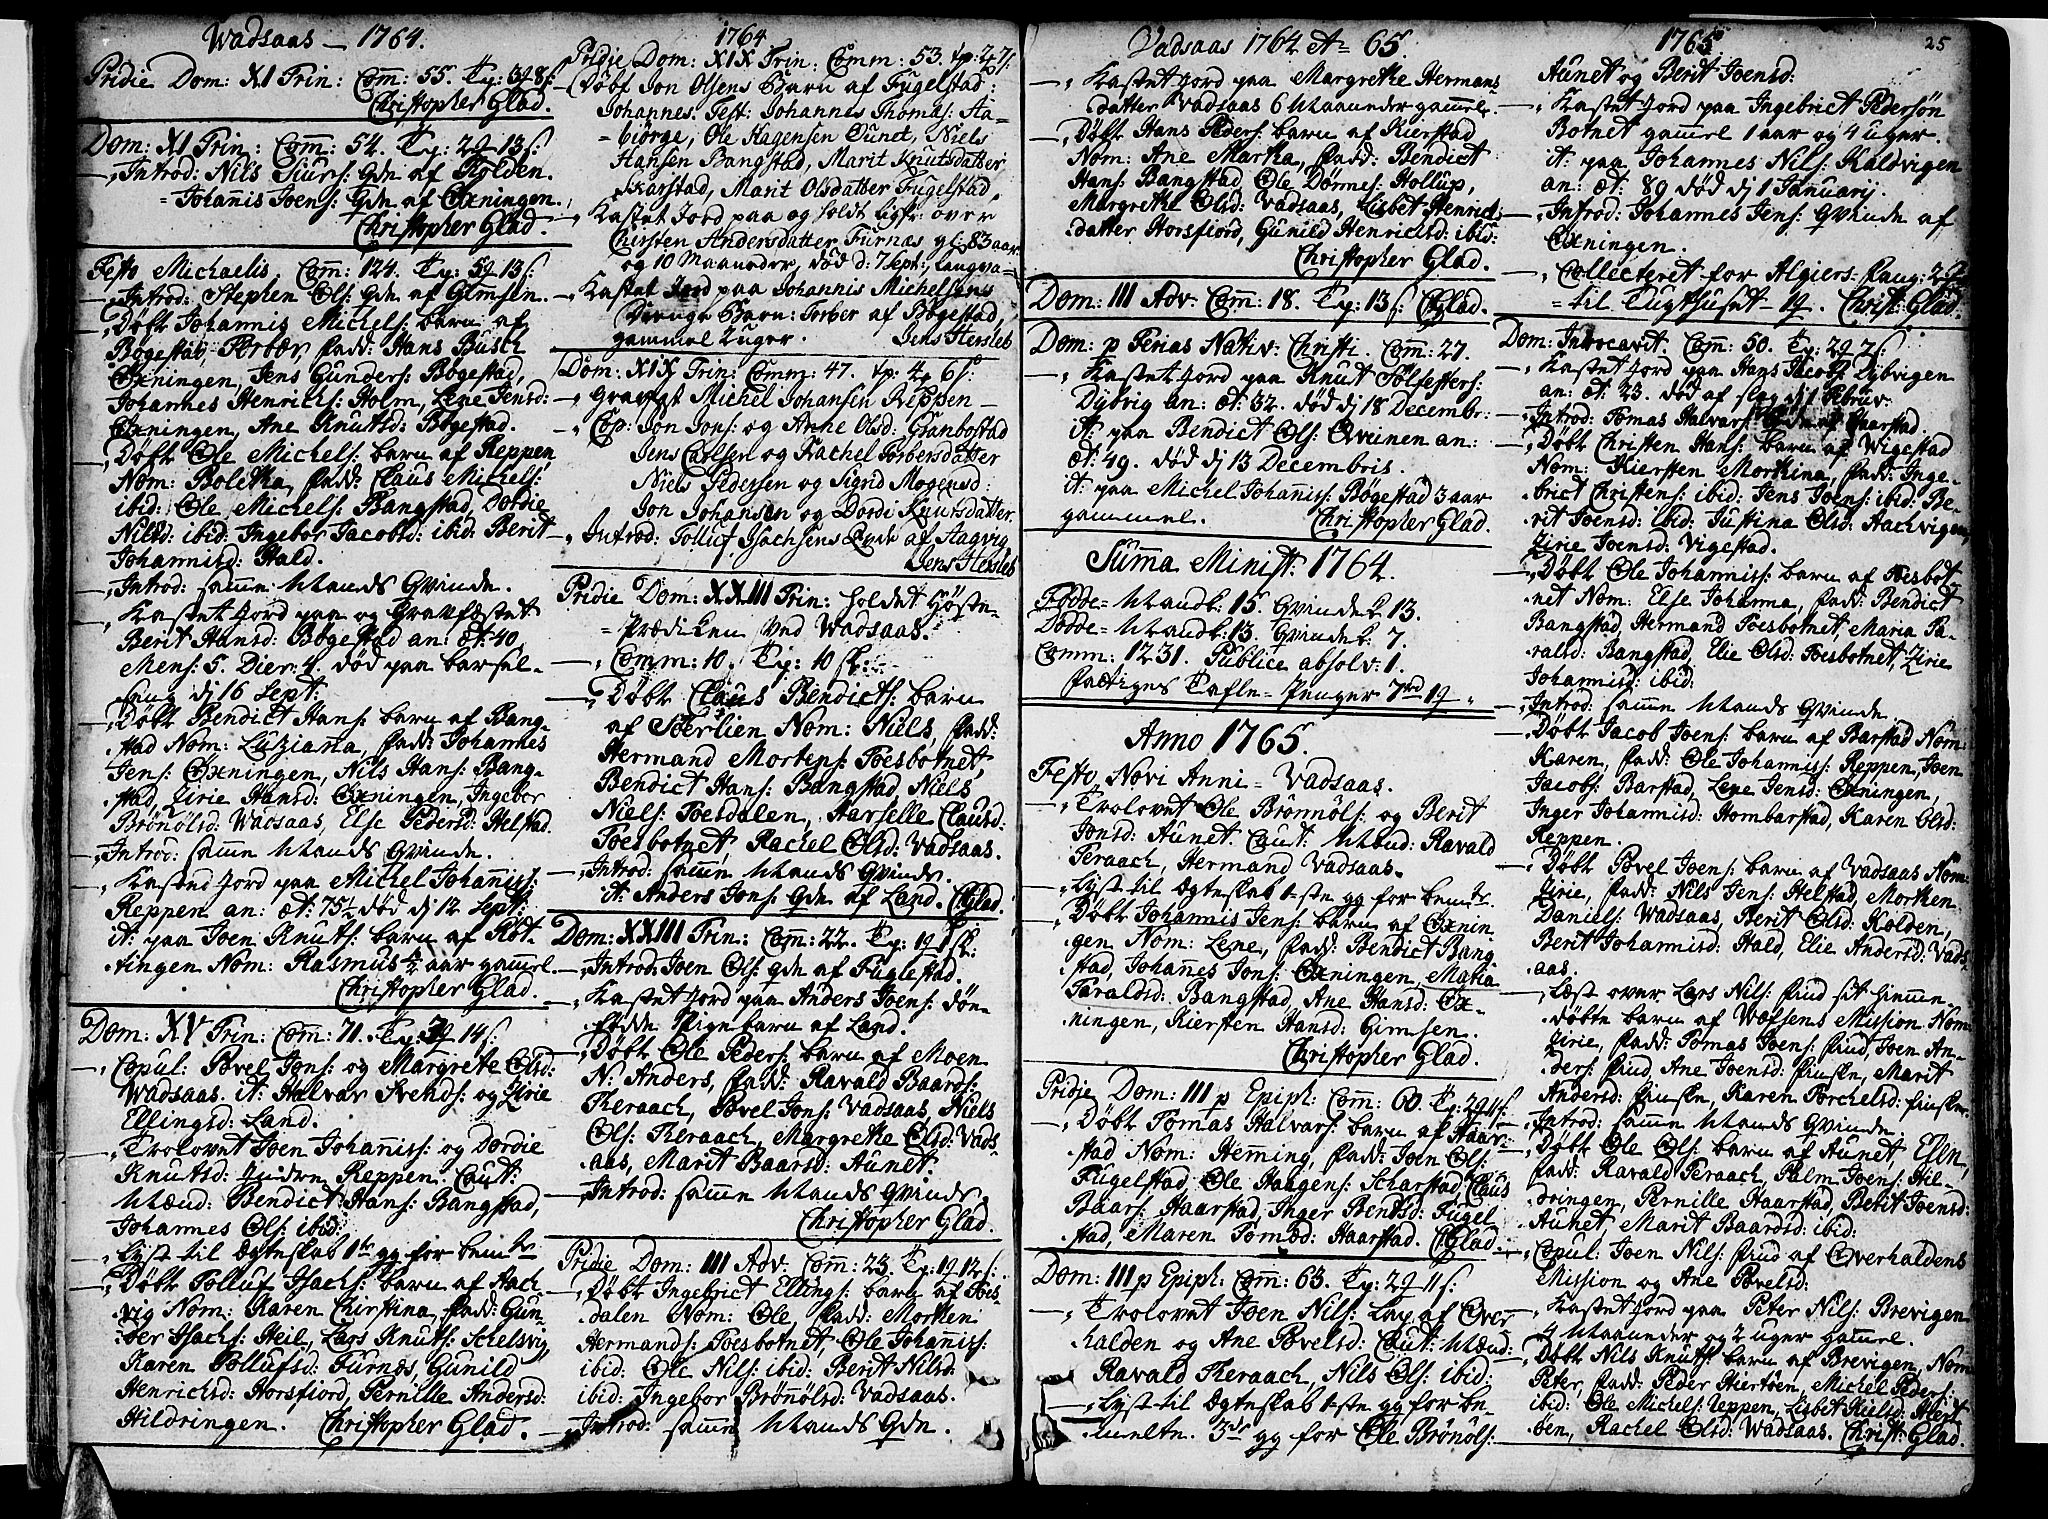 Wadsaas – 1764.
Pridie Dom: XI Trin: Com̅: 55. Tp: 3 8 s:
Christopher Glad.
Dom: XI Trin: Com̅: 54. Tp: 2 13 s:
Introd: Nils Siurs: Qde af Kolden.
Johanis Joens: Qde af Oxningen.
Christopher Glad.
Festo Michaelis, Com̅: 124. Tp: 5 13 s:
Introd: Stephen Ols: Qde af Gimsen.
Døbt Johannis Michels: barn af
Bøgestad, Torber, fadd: Hans Busch
Oxningen, Jens Gunders: Bøgestad,
Johannes Henrichs: Holm, Lene Jensd:
Oxningen, Ane Knutsd: Bøgestad.
Døbt Ole Michels: barn af Reppen
Nom: Boletha, fadd: Claus Michels:
ibid: Ole Michels: Bangstad, Dordie
Nilsd: ibid: Ingebor Jacobsd: ibid: Berit
Johannisd: Hald.
Introd: samme Mands Qvinde.
Kastet Jord paa og Gravfæstet
Berit Hansd: Bøgestad an: æt: 40,
Mens: 5. Dier: 4. død paa barsel-
seng dj 16 Sept:
Døbt Bendict Hans: barn af Bang-
stad Nom: Lutziana, fadd: Johannes
Jens: Oxningen, Nils Hans: Bang-
stad, Zirie Hansd: Oxningen, Ingebor
Brønølsd: Wadsaas, Else Pedersd: Helstad.
Introd: samme Mands Qvinde.
Kasted Jord paa Michel Johannis:
Reppen an: æt: 75½ død dj 12 Sept:
it: paa Joen Knuts: barn af Rot-
tingen Nom: Rasmus ½ aar gammel.
Christopher Glad.
Dom: XV Trin: Com̅: 71. Tp: 3 14 s:
Copul: Povel Jons: og Margrete Olsd:
Wadsaas. it: Halvar Svends: og Zirie
Ellingsd: Land.
Trolovet Joen Johanniss: og Dordie
Knutsd: Reppen. Caut:
Mænd: Bendict Hans: Bangstad,
Johannes Ols: ibid:
Lyst til Ægteskab 1ste gg for bem̅te
Døbt Tolluf Isachs: barn af Aach-
vig Nom: Karen Chirstina, fadd: Gun-
der Isachs: Heil, Lars Knuts: Schelsvig,
Karen Tollufsd: Furnæs, Gunild
Henrichsd: Horsfiord, Pernille Andersd:
Hildringen. Christopher Glad.
1764
Pridie Dom: XIX Trin: Comm: 53. tp: 2 7 s:
Døbt Jon Olsens Barn af Fugelstad:
Johannes. Test: Johannes Thomas: Aa-
biörge, Ole Hagensen Ounet, Niels
Hansen Bangstad, Marit Knutsdatter
Skarstad, Marit Olsdatter Fugelstad,
Kastet Jord paa og holdt ligpr: over
Chirsten Andersdatter Furnæs gl: 83 aar
og 10 Maaneder, død d: 7 Sept:,
Kastet Jord paa Johannis Michelsens
Drenge Barn: Torber af Bøgestad,
gammel 2 uger. Jens Hersleb
Dom: XIX Trin: Comm: 47. tp: 4 6 s:
Gravfæst Michel Johansen Reppen
Cop: Jon Jons: og Anne Olsd: Granbostad
Jens Carlsen og Rachel Torbersdatter
Niels Pedersen og Sigrid Mogensd:
Jon Johansen og Dordi Knutsdatter.
Introd: Tolluf Isachsens Qvde af Aagvig
Jens Hersleb
Pridie Dom: XXIII Trin: holdet Høste-
Prædiken ved Wadsaas.
Comm: 10. Tp: 10 s:
Døbt Claus Bendicts: barn
af Sørlien Nom: Niels, fadd:
Hermand Mortens: Foesbotnet,
Bendict Hans: Bangstad, Niels
Niels: Foesdalen, Marselle Clausd:
Foesbotnet, Rachel Olsd: Vadsaas.
Introd: samme Mands Qvinde.
it: Anders Jons: Qde af Land. CGlad.
Dom: XXIII Trin: Com̅: 22. Tp: 1 1 s:
Introd: Joen Ols: Qde af Fuglestad.
Kastet Jord paa Anders Joens: død-
fødde Pigebarn af Land.
Døbt Ole Peders: barn af Moen
N: Anders, fadd: Ravald Baards:
Theraach, Povel Jons: Vadsaas, Niels
Ols: Theraach, Margrethe Olsd: Vads-
aas, Marit Baarsd: Aunet.
Introd: samme Mands Qvinde.
Christopher Glad.
Pridie Dom: III Adv. Com̅: 23. Tp: 1 12 s:
Døbt Ingebrict Ellings: barn af Foes-
dalen Nom: Ole, fadd: Morten
Hermands: Foesbotnet, Ole Johannis:
ibid: Ole Nils: ibid: Berit Nilsd:
ibid: Ingebor Brønølsd: Vadsaas.
Introd: samme Mands Qde.
Vadsaas 1764 A= 65.
Kastet Jord paa Margrethe Hermans
datter Vadsaas 6 Maaneder gammel.
Døbt Hans Peders: barn af Kierstad
Nom: Ane Martha, fadd: Bendict
Hans: Bangstad, Ole Dønnes: Hollup,
Margrethe Olsd: Vadsaas, Lisbet Henrics
datter Horsfiord, Gunild Henrichsd: ibid:
Christopher Glad.
Dom: III Adv: Com̅: 18. Tp: 13 s CGlad.
Dom: p Ferias Nativ: Christi. Com̅: 27.
Kastet Jord paa Knut Tolfesters:
Dybvig an: æt: 32. død dj 18 Decembr:
it paa Bendict Ols: Qviinen an:
æt: 49. død dj 13 Decembris.
it: paa Michel Johanis: Bøgestad 3 aar
gammel. Christopher Glad.
Sum̅a Minist: 1764.
Fødde= Mandk: 15. Qvindek 13.
Dødde= Mandk: 13. Qvindek: 7.
Comm: 1231. Publice absolv: 1.
Fattiges Tafle-Penger 7rd 1
Anno 1765.
Festo Novi Anni= Vadsaas.
Trolovet Ole Brønnøls: og Berit
Jonsd: Aunet. Caut: Mænd: Ravald
Teraach, Hermand Vadsaas.
Lyst til Ægteskab 1-ste gg for bem̅te.
Døbt Johannis Jens: barn af Oxnin-
gen Nom: Lene, fadd: Bendict Bang-
stad, Johannes Jons: Oxningen, Maria
Taraldsd: Bangstad, Ane Hansd: Ox-
ningen, Kiersten Hansd: Gimsen.
Christopher Glad.
Pridie Dom: III p Epiph: Com̅: 60. Tp: 2 11 s:
Døbt Tomas Halvars: barn af Haar-
stad Nom: Hemming, fadd: Joen Ols:
Fugelstad, Ole Haagens: Scharstad, Claus
Baars: Haarstad, Inger Bendsd: Fugel-
stad, Maren Tomæd: Haarstad. CGlad.
Dom: III p Epiph: Com̅: 63. Tp: 2 11 s:
Trolovet Joen Nils: Lap af Over
halden og Ane Povelsd: Caut: Mænd:
Ravald Theraach, Nils Ols: ibid:
Lyst til Ægteskab 1-ste gg for be-
meltn. 3die gg for Ole Brønøls:
1765. 25
Aunet og Berit Joensd:
Kastet Jord paa Ingebrict Pedersøn
Botnet gammel 1 aar og 4 uger.
it: paa Johannes Nils: Kaldvigen
an: æt: 89 død dj 1 Januarij.
Introd: Johannes Jens: Qvinde af
Oxningen.
Collecteret for Algiers-fang:
til Tugthuset 1 Christ: Glad.
Dom: Invocavit. Com̅: 50. Tp: 2 7 s:
Kastet Jord paa Hans Jacobs: Dybvigen
an: æt: 23. død af slag dj 1 Febrùv.
Introd: Tomas Halvars: Qde af Haarstad.
Døbt Christen Hans: barn af Vigestad
Nom: Kiersten Morthina, fadd: Inge-
brict Christens: ibid: Jens Joens: ibid: Be-
rit Joensd: ibid: Justina Olsd: Aachvigen,
Zirie Joensd: Vigestad.
Døbt Ole Johannis: barn af Foesbot-
net Nom: Else Johanna, fadd: Bendict
Bangstad, Hermand Foesbotnet, Maria Ta-
ralsd: Bangstad, Elie Olsd: Foesbotnet, Zirie
Johannisd: ibid:
Introd: samme Mands Qvinde
Døbt Jacob Joens: barn af Barstad Nom:
Karen, fadd: Ole Johannis: Reppen, Joen
Jacobs: Barstad, Lene Jensd: Oxningen,
Inger Johannisd: Hombarstad, Karen Olsd:
Reppen.
Døbt Povel Joens: barn af Vadsaas Nom:
Zirie, fadd: Nils Jens: Helstad, Morthen
Daniels: Wadsaas, Berit Olsd: Kolden,
Berit Johannisd: Hald, Elie Andersd: Vads-
aas.
Læst over Lars Nils: find sit hiemme-
døbte barn af Wefsens Mission Nom:
Zirie, fadd: Tomas Joens: find, Joen An-
ders: find, Ane Joensd: finske, Marit
Andersd: finske, Karen Torchelsd: finske.
Introd: samme Mands Qvinde.
Døbt Ole Ols: barn af Aunet, Ellen,
fadd: Ravald Teraach, Palm Joens: Hil-
dringen, Pernille Haarstad, Berit Joensd:
Aunet, Marit Baardsd: ibid:
Copul: Joen Nils: find af Overhaldens
Mission og Ane Povelsd:
Kastet Jord paa Peter Nils: Brevigen
4 Maaneder og 2 uger gammel.
Døbt Nils Knuts: barn af Brevigen, Nom:
Peter, fadd: Peder Hiertøen, Michel Peders:
ibid: Ole Michels: Reppen, Lisbet Nielsd: Hiert-
øen, Rachel Olsd: Wadsaas. Christ: Glad.